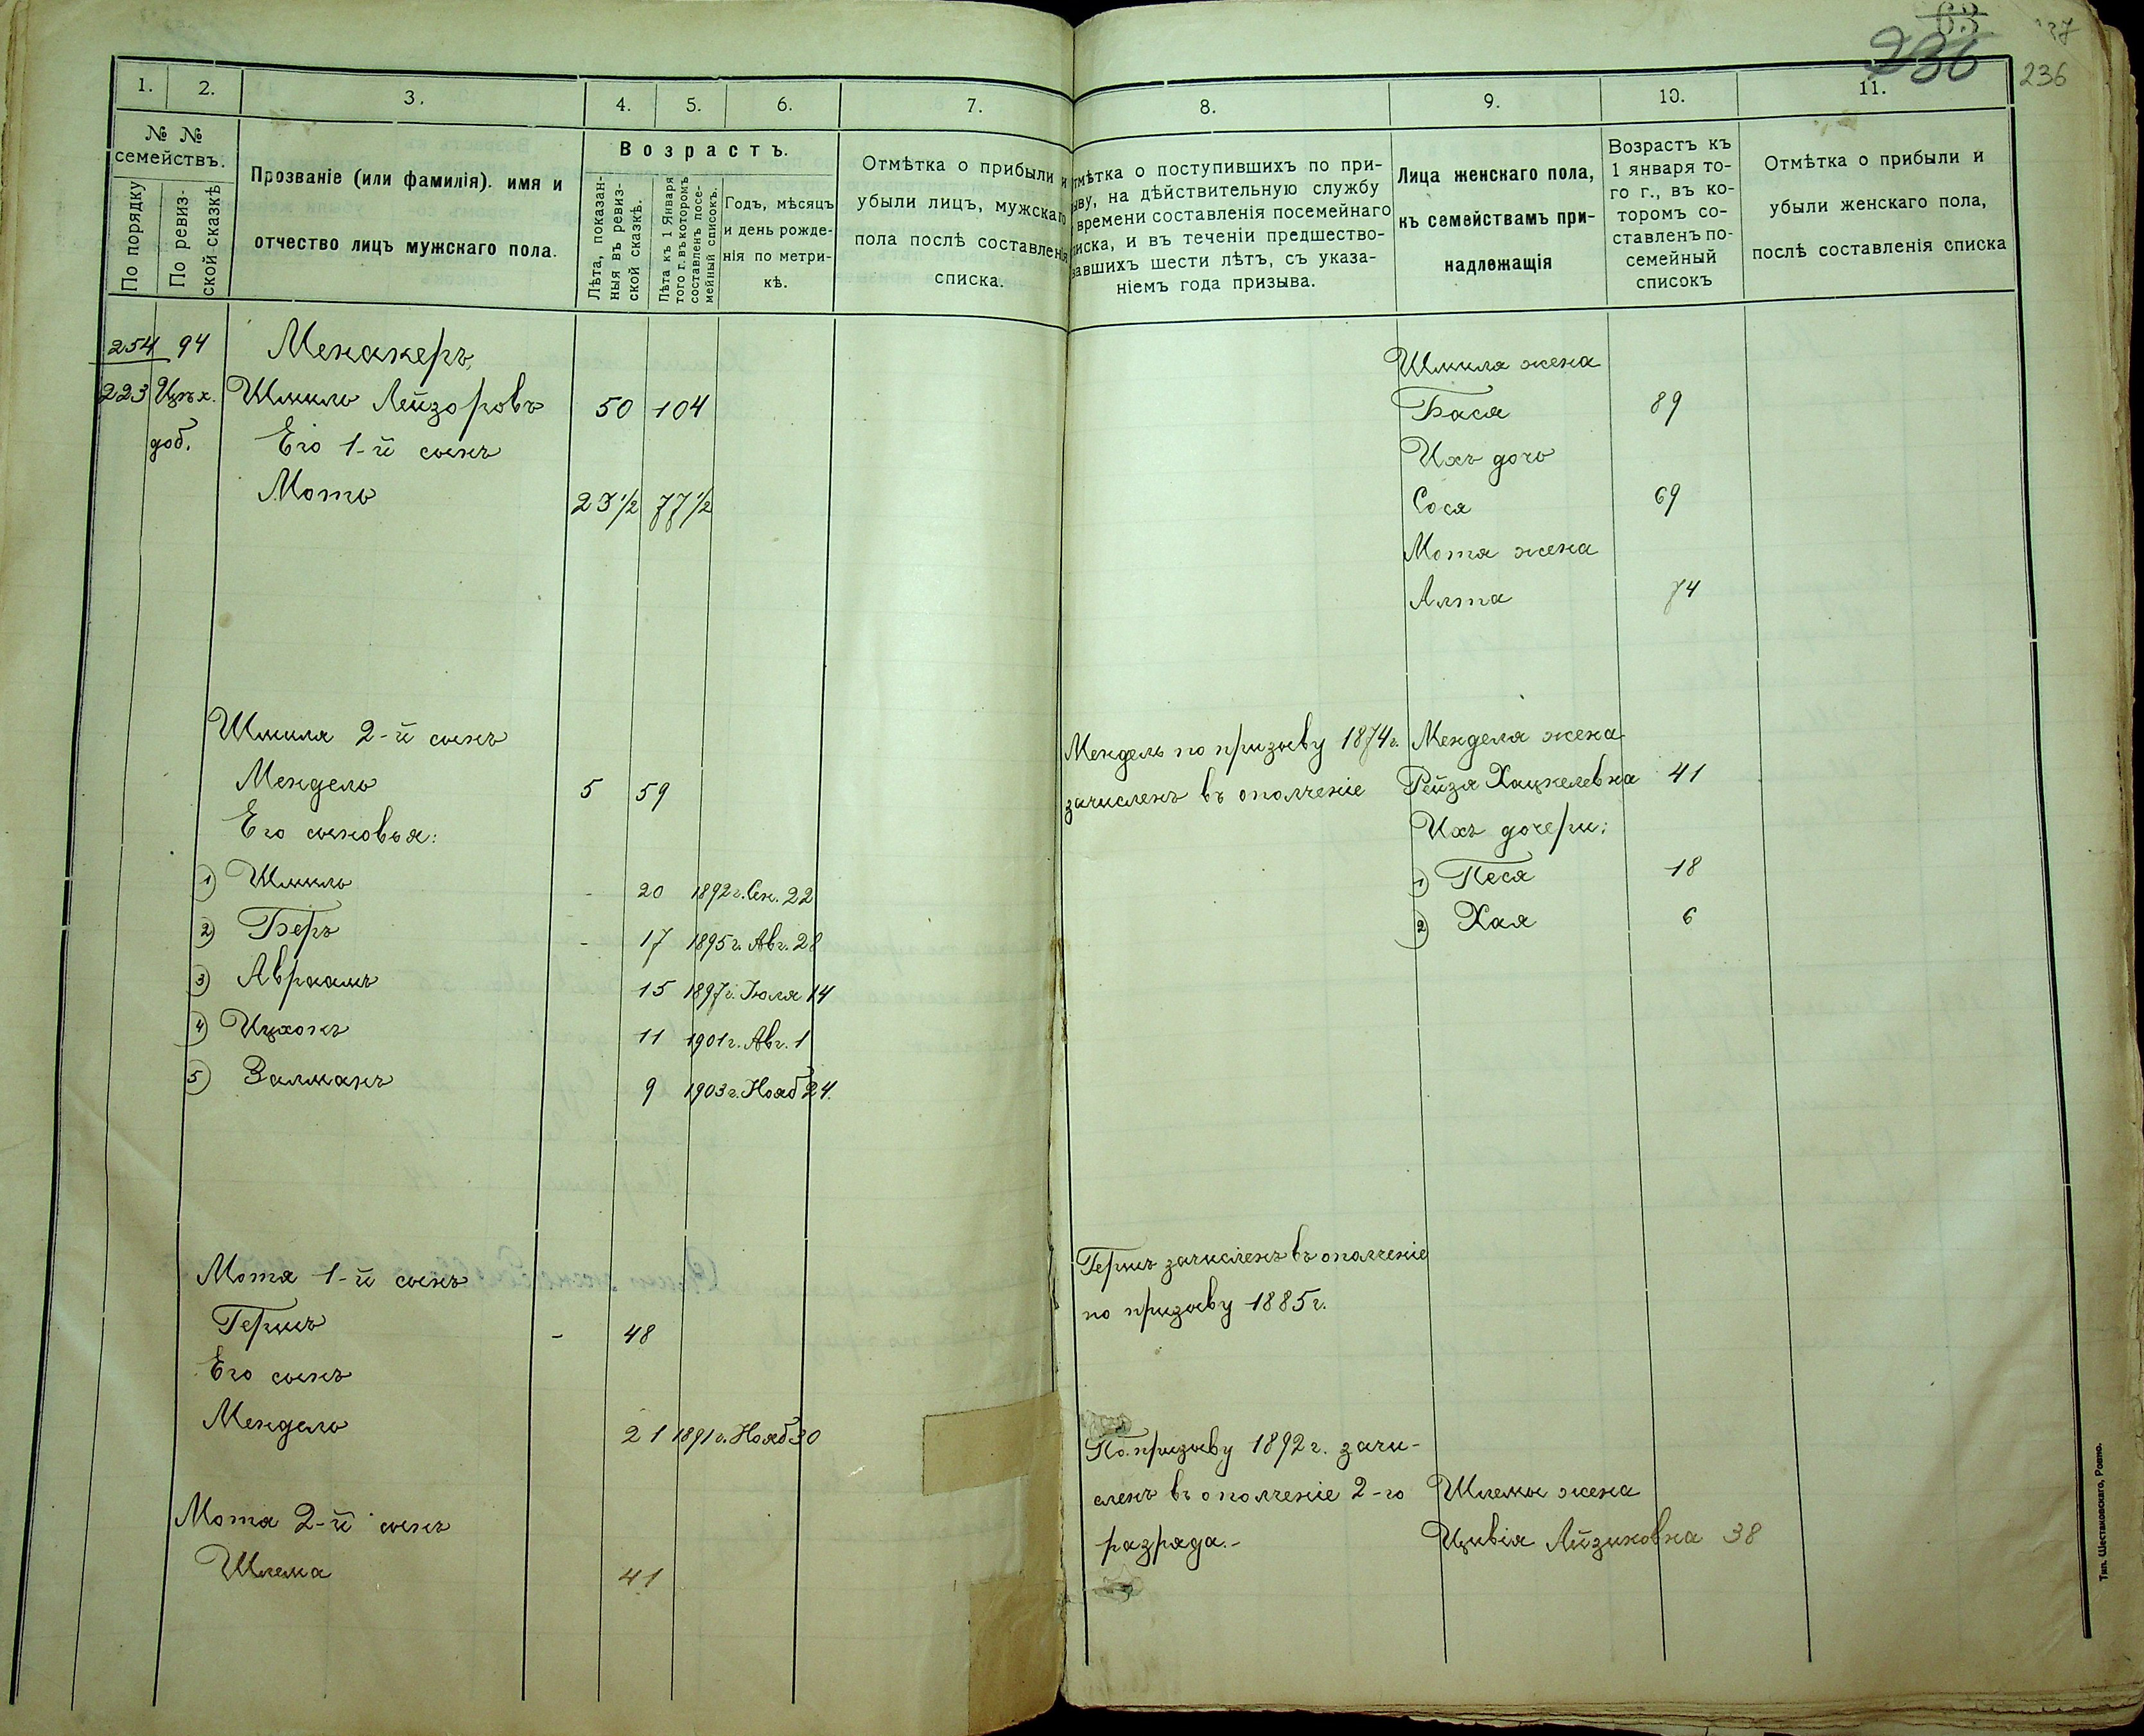 63
236
236
1.
2.
3.
4.
5.
6.
7.
№ №
семействъ.
По порядку
По ревиз-
ской сказкѣ
Прозваніе (или фамилія). имя и
отчество лицъ мужскаго пола.
Возрастъ.
Лѣта, показан-
ныя въ ревиз-
ской сказкѣ.
Лѣта къ 1 Января
того г. въ которомъ
составленъ посе-
мейный списокъ.
Годъ, мѣсяцъ
и день рожде-
нія по метри-
кѣ.
Отмѣтка о прибыли и
убыли лицъ, мужскаго
пола послѣ составленія
списка.
254 94 Менакеръ
223 Шмиль Лейзоровъ 50 104
доб. Его 1-й сынъ
Моть 23½ 77½
Шмиля 2-й сынъ
Мендель 5 59
Его сыновья:
1) Шмиль - 20 1892 г. Сен. 22
2) Беръ - 17 1895 г. Авг. 28
3) Авраамъ 15 1897 г. Іюля 14
4) Ицхокъ 11 1901 г. Авг. 1
5) Залманъ 9 1903 г. Нояб 24.
Мотя 1-й сынъ
Гершъ - 48
Его сынъ
Мендель 21 1891 г. Нояб 30
Мотя 2-й сынъ
Шлема 41
8.
9.
10.
11.
тмѣтка о поступившихъ по при-
ыву, на дѣйствительную службу
времени составленія посемейнаго
писка, и въ теченіи предшество-
вавшихъ шести лѣтъ, съ указа-
ніемъ года призыва.
Лица женскаго пола,
къ семействамъ при-
надлежащія
Возрастъ къ
1 января то-
го г., въ ко-
торомъ со-
ставленъ по-
семейный
списокъ
Отмѣтка о прибыли и
убыли женскаго пола,
послѣ составленія списка
Шмиля жена
Бася 89
Ихъ дочь
Сося 69
Мотя жена
Алта 74
Мендель по призыву 1874 г. Менделя жена
зачисленъ въ ополченіе Рейзя Хацкелевна 41
Ихъ дочери:
1) Песя 18
2) Хая 6
Гершъ зачисленъ въ ополченіе
по призыву 1885 г.
По призыву 1892 г. зачи-
сленъ въ ополченіе 2-го Шлемы жена
разряда.- Цивія Айзиковна 38
Тип. Шестаковскаго, Ровно.